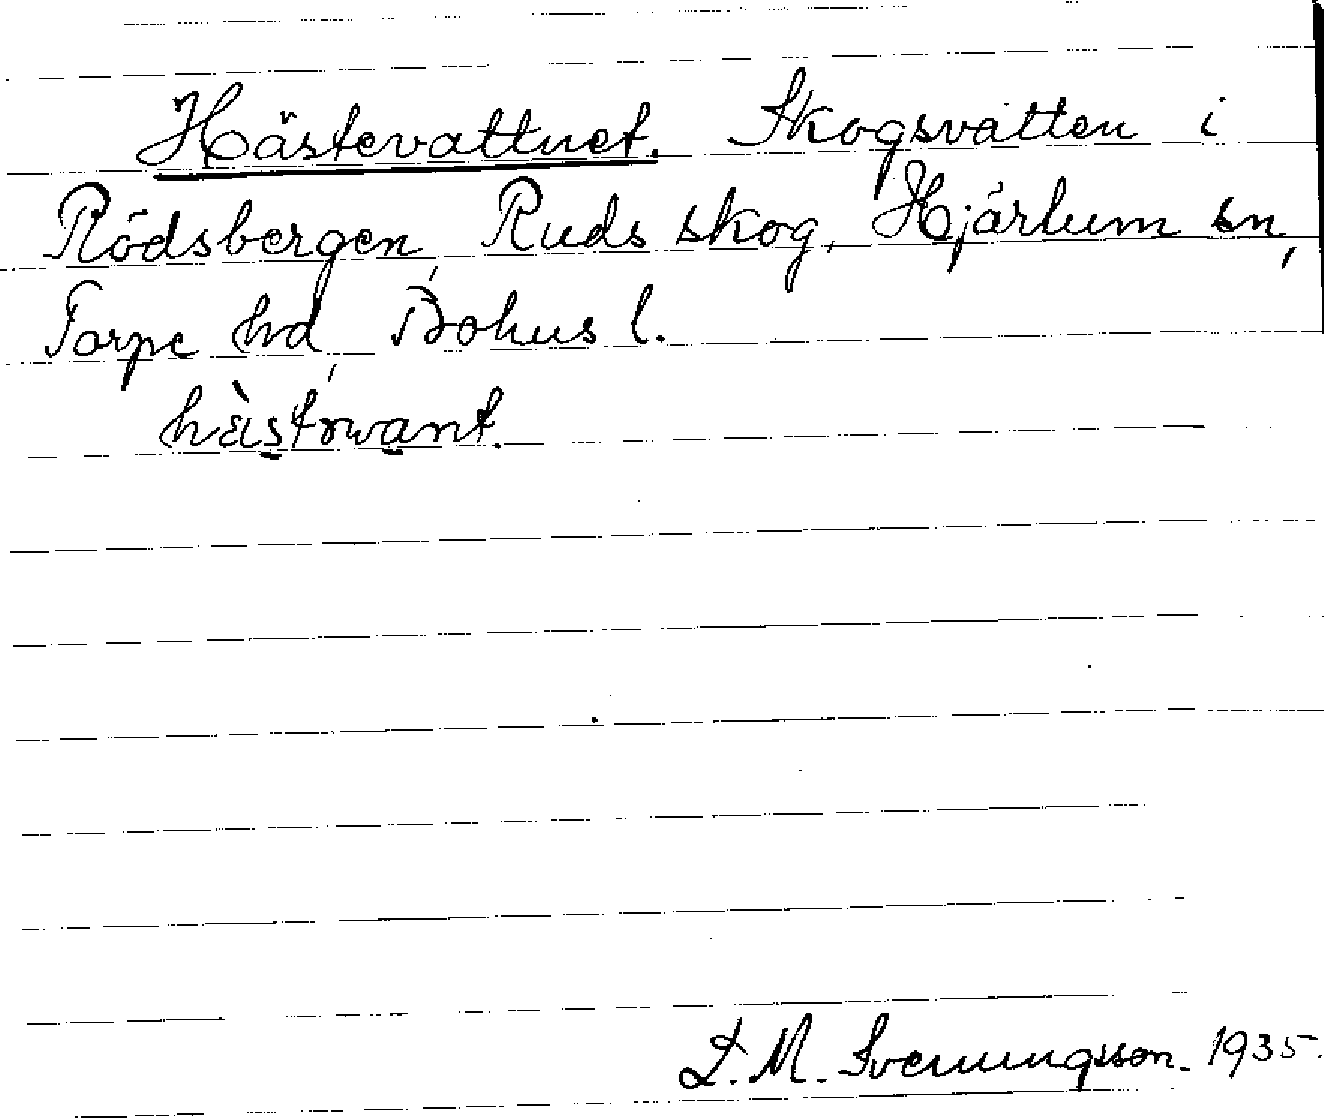 Hästevattnet. Skogsvatten i
Rödsbergen, Ruds skog, Hjärtum sn,
Torpe hd, Bohus l.
L. M. Svenungsson. 1935.